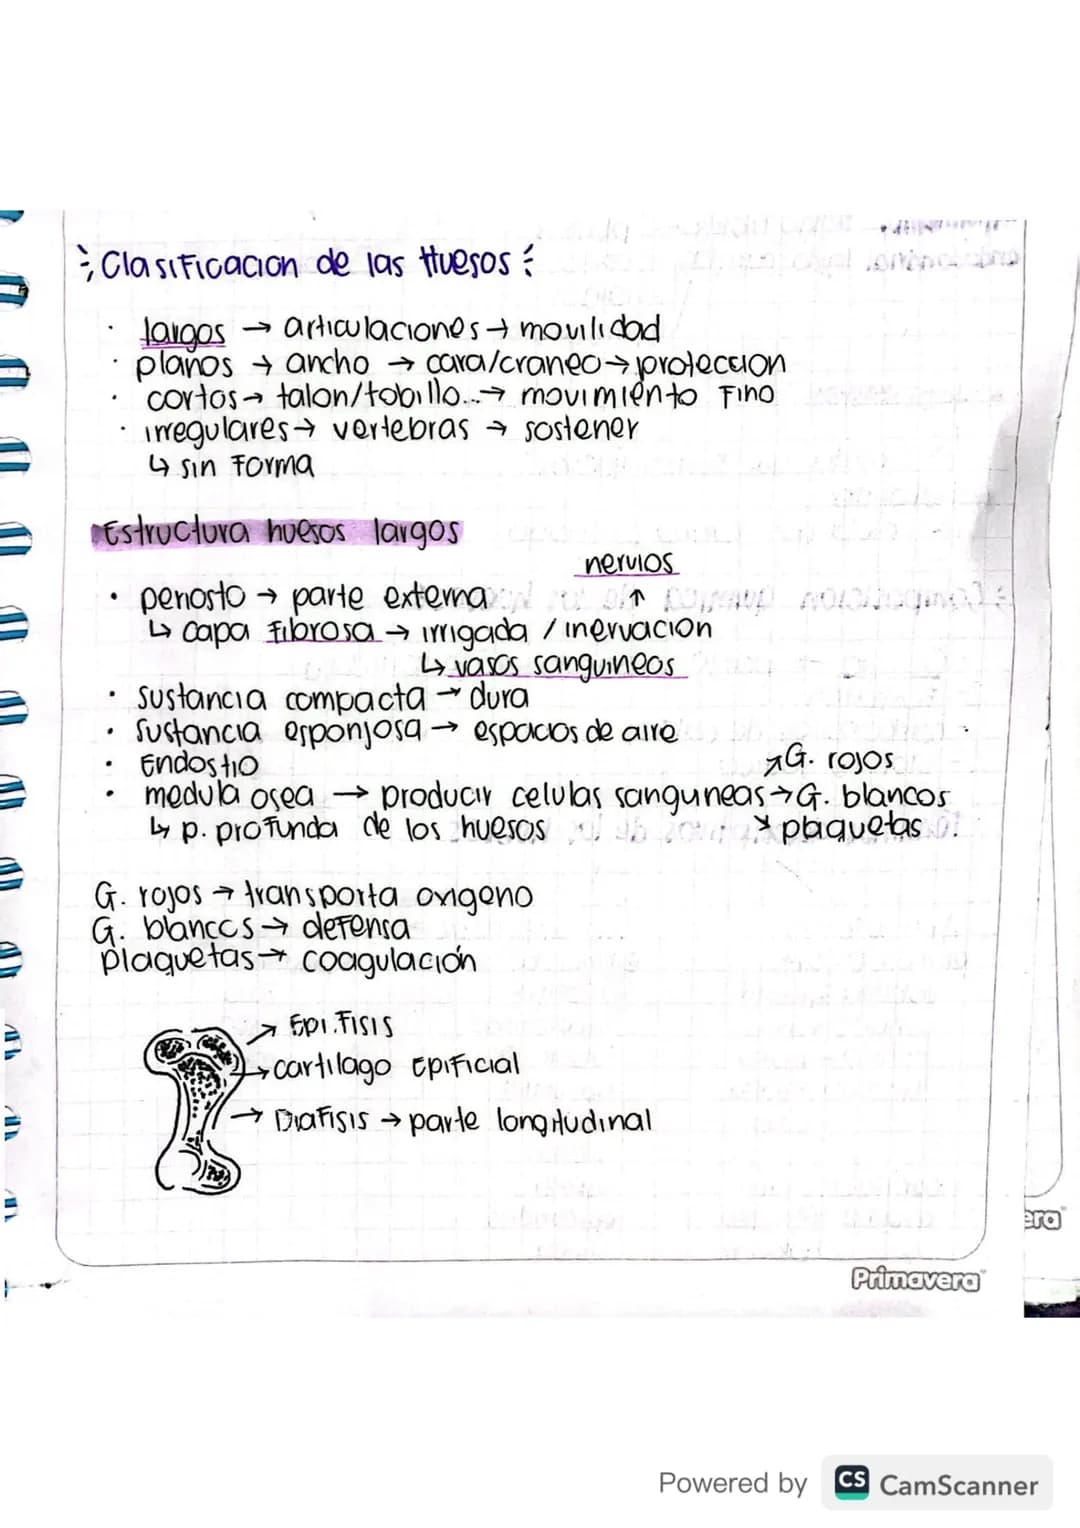 Clasificacion de las Huesos
· largos → articulaciones → movilidad
· planos → ancho → cara/craneo → proteccion
· cortos → talon/tobillo... → movimiento Fino
· irregulares → vertebras → sostener
↳ sin Forma
Estructura huesos largos
nervios
· periosto → parte externa ↑
↳ capa fibrosa → irrigada / inervacion
↳ vasos sanguineos
· sustancia compacta → dura
· sustancia esponjosa → espacios de aire
· Endostio ↗ G. rojos
· medula osea → producir celulas sanguneas → G. blancos
↳ p. profunda de los huesos ↘ plaquetas
G. rojos → transporta oxigeno
G. blancos → defensa
plaquetas → coagulación
→ Epi.Fisis
→ cartilago Epificial
→ Diafisis → parte longitudinal
era
Primavera
Powered by CS CamScanner